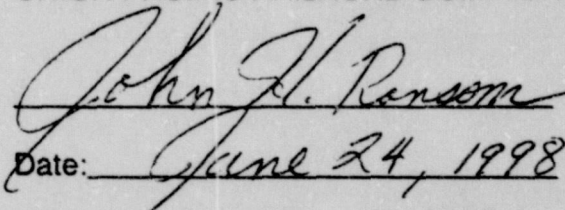 John H. Ransom
Date: June 24, 1998